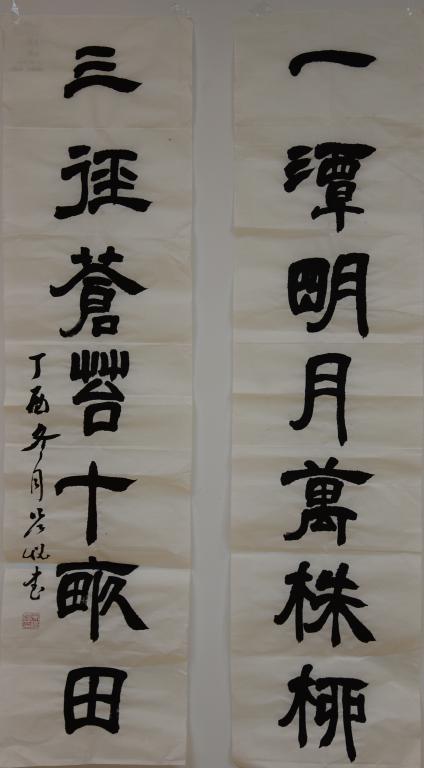 一潭明月萬株柳
三徑蒼苔十畝田
丁酉冬月书